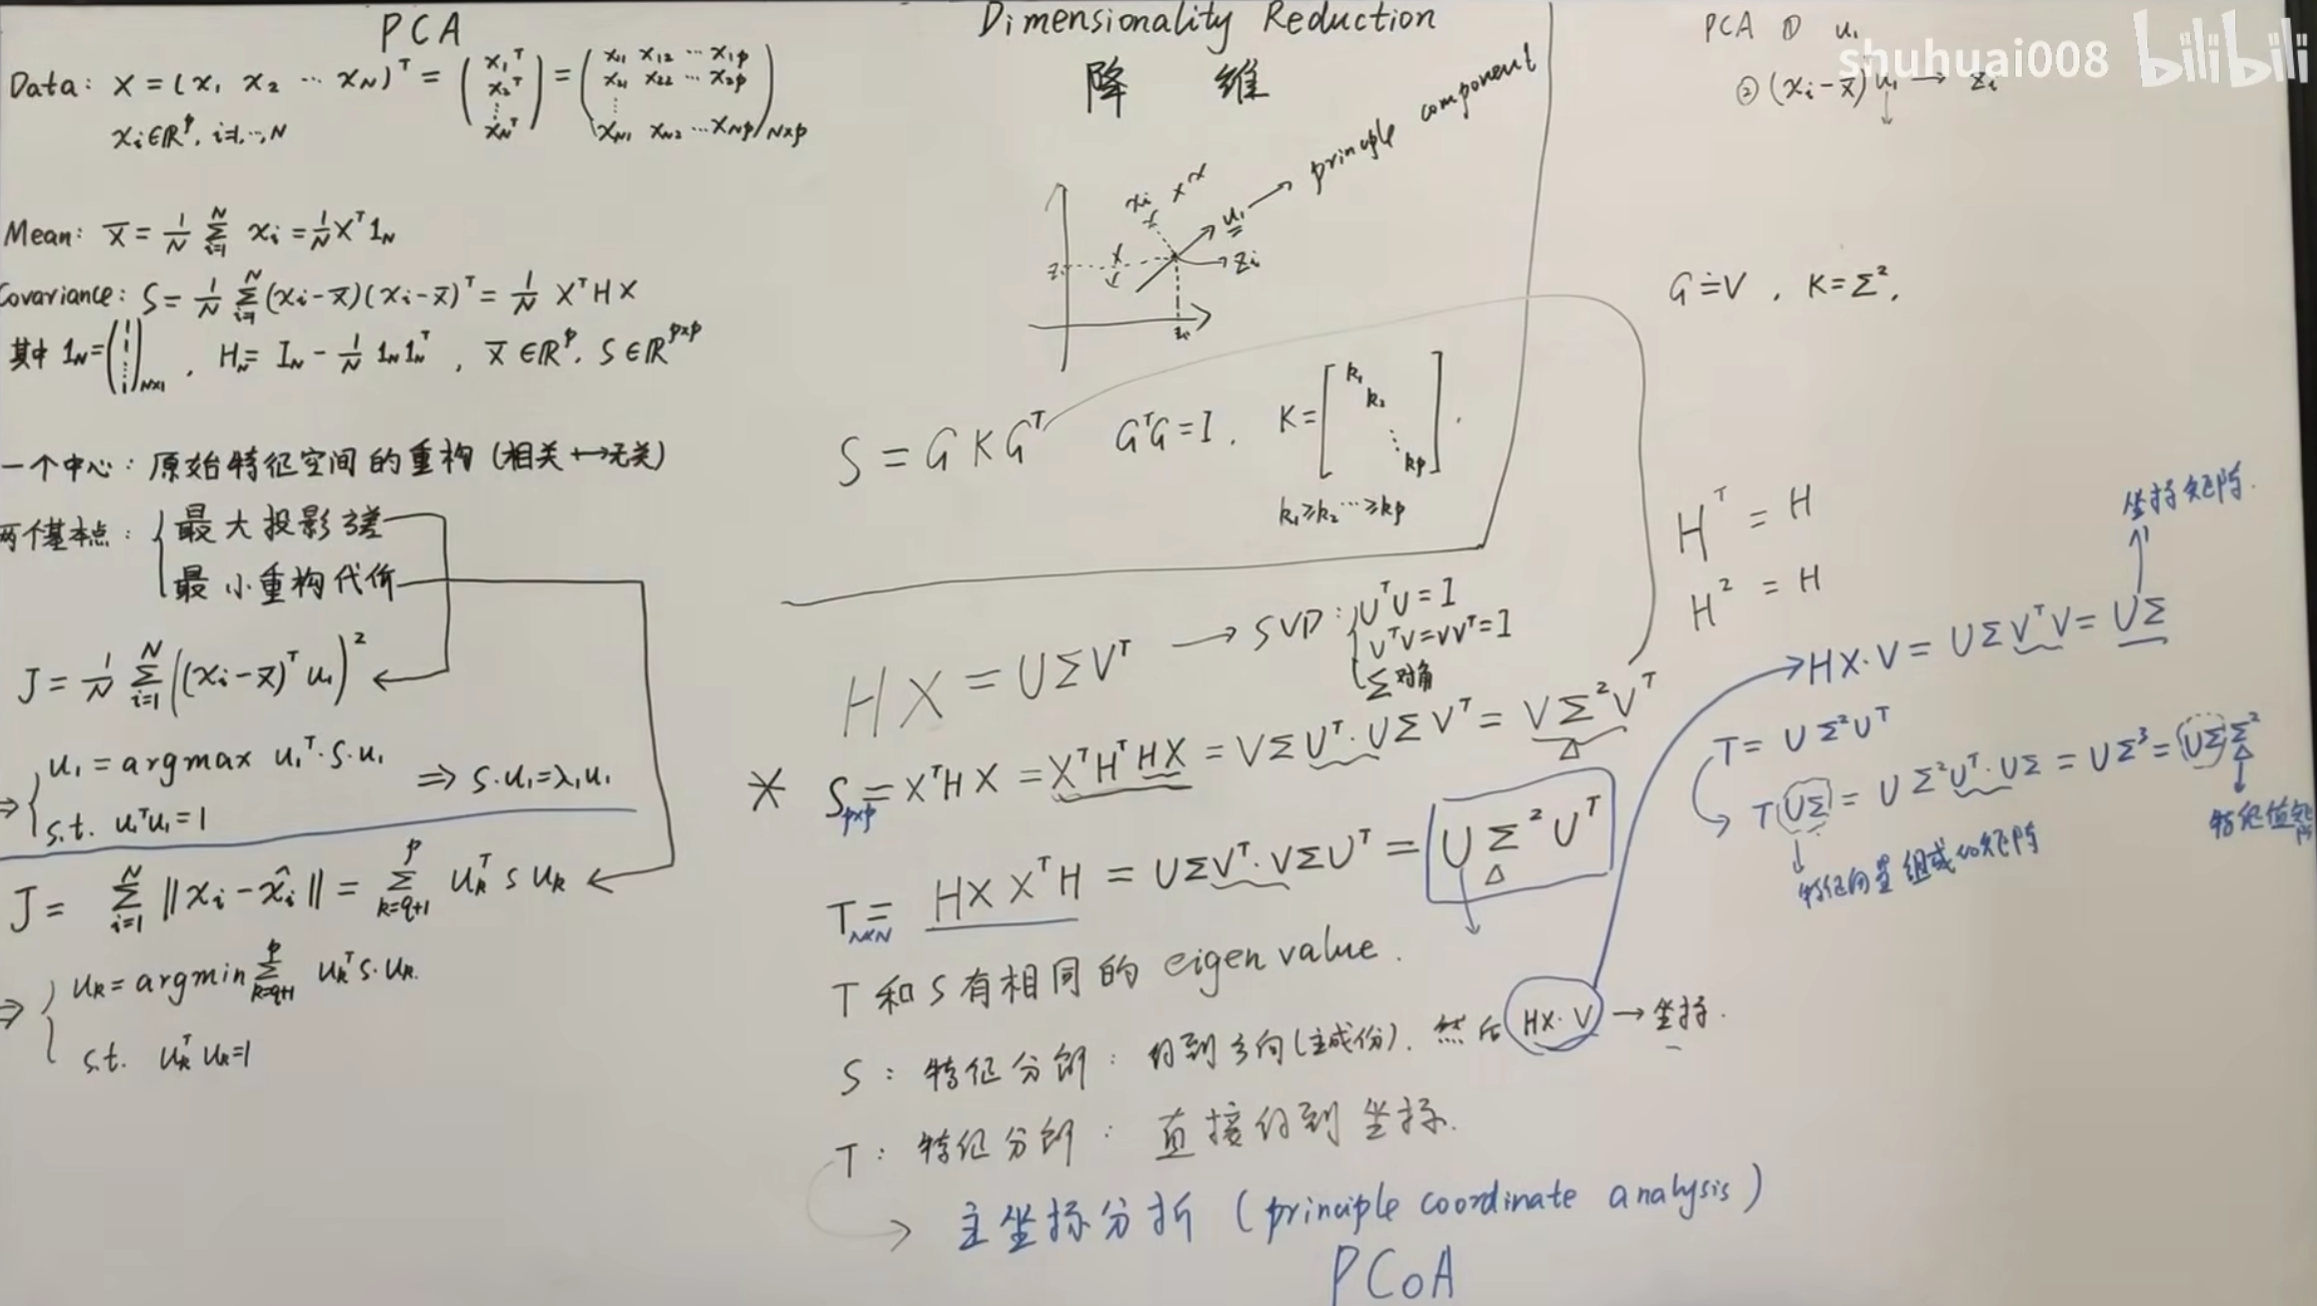 PCA
Data: X = (x₁ x₂ ⋯ x_N)ᵀ = (x₁ᵀ x₂ᵀ ⋮ x_Nᵀ) = (x₁₁ x₁₂ ⋯ x₁p
x₂₁ x₂₂ ⋯ x₂p
⋮
x_N1 x_N2 ⋯ x_Np)_N×p
xᵢ∈ℝᵖ, i=1,⋯,N
Mean: x̄ = 1/N ∑_{i=1}^{N} xᵢ = 1/N Xᵀ1_N
Covariance: S = 1/N ∑_{i=1}^{N} (xᵢ-x̄)(xᵢ-x̄)ᵀ = 1/N XᵀHX
其中 1_N = (1 1 ⋮ 1)_N×1 , H_N = I_N - 1/N 1_N1_Nᵀ , x̄∈ℝᵖ, S∈ℝ^{p×p}
一个中心: 原始特征空间的重构 (相关↔无关)
两个基本点: { 最大投影方差
最小重构代价
J = 1/N ∑_{i=1}^{N} ((xᵢ-x̄)ᵀ u₁)²
⇒ { u₁ = argmax u₁ᵀ·S·u₁
s.t. u₁ᵀu₁=1
⇒ S·u₁=λ₁u₁
J = ∑_{i=1}^{N} ‖xᵢ-x̂ᵢ‖ = ∑_{k=q+1}^{p} u_kᵀ S u_k
⇒ { u_k = argmin ∑_{k=q+1}^{p} u_kᵀ S·u_k.
s.t. u_kᵀu_k=1
Dimensionality Reduction
降 维
xᵢ
u₁ → principle component
zᵢ
zᵢ
zᵢ
S = GKGᵀ GᵀG=I. K = [k₁ k₂ ⋱ kp].
k₁≥k₂⋯≥kp
HX = UΣVᵀ → SVD: { UᵀU=I
VᵀV=VVᵀ=I
Σ对角
* S_p×p = XᵀHX = XᵀHᵀHX = VΣUᵀ·UΣVᵀ = VΣ²Vᵀ
T_N×N = HXXᵀH = UΣVᵀ·VΣUᵀ = UΣ²Uᵀ
T和S有相同的 eigen value.
S: 特征分解: 得到方向(主成份). 然后 HX·V → 坐标.
T: 特征分解: 直接得到坐标.
→ 主坐标分析 (principle coordinate analysis)
PCoA
PCA ① u₁
② (xᵢ-x̄)ᵀu₁ → zᵢ
G=V , K=Σ²,
Hᵀ = H
H² = H
坐标矩阵.
HX·V = UΣVᵀV = UΣ
T = UΣ²Uᵀ
TUΣ = UΣ²Uᵀ·UΣ = UΣ³ = UΣΣ²
特征向量组成的矩阵
特征值矩阵
shuhuai008 bilibili